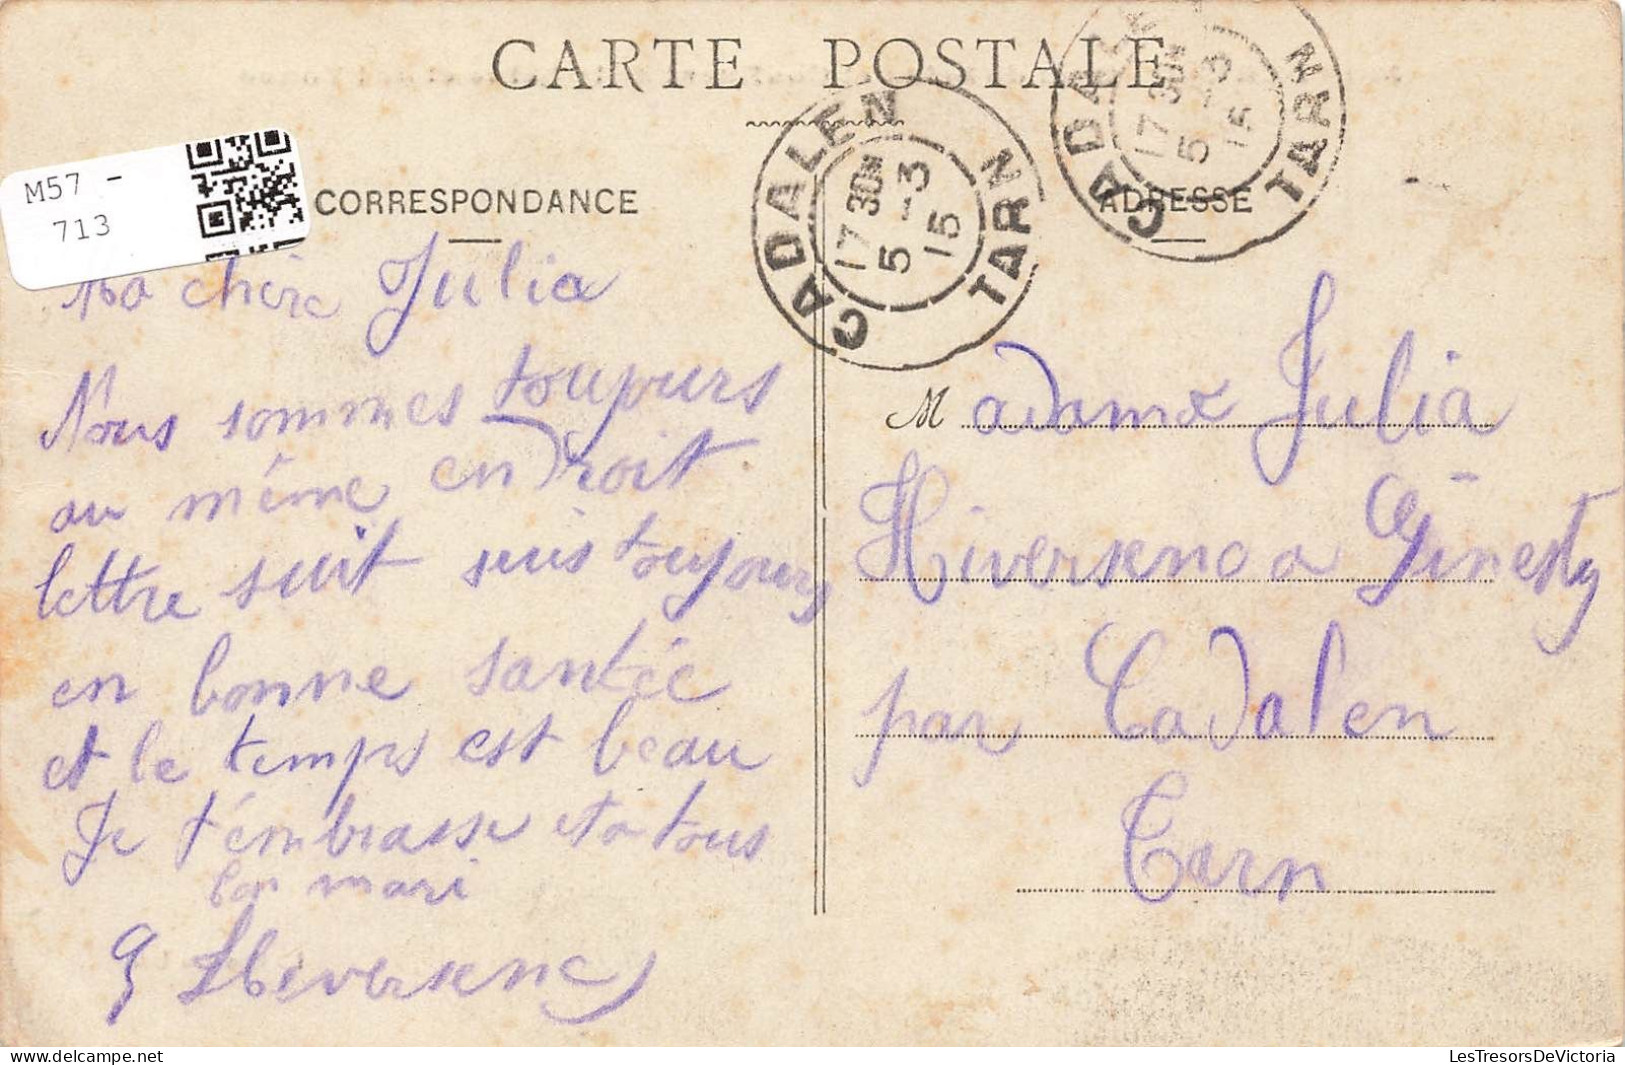 CARTE POSTALE
M57 -
713
CORRESPONDANCE
ADRESSE
CADALEN
17 30
5 -3
15
TARN
CADALEN
17 30
5 -3
15
TARN
Ma chère Julia
Nous sommes toujours
au même endroit
lettre suit suis toujours
en bonne santée
et le temps est beau
Je t'embrasse et a tous
ton mari
Madame Julia
a Ginesty
par Cadalen
Tarn
LesTresorsDeVictoria